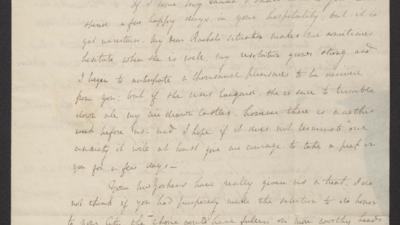 if I have any
share a few happy days, in your hospitality, but it is
yet uncertain, my dear Rachel's situation makes me sometimes
hesitate, when she is well, my resolution grows strong and
I begin to anticipate a thousand pleasures to be
from you: but if she seems languid, she is sure to tumble
down all my air drawn castles. however there is another
week before us and I hope if it does not terminate our
anxiety it will at least give me courage to take a peep in
you for a few days—
Your have really given us a treat, I do
not think if you had purposely made the selection to do honor
to your City the choice could have fallen on more worthy heads